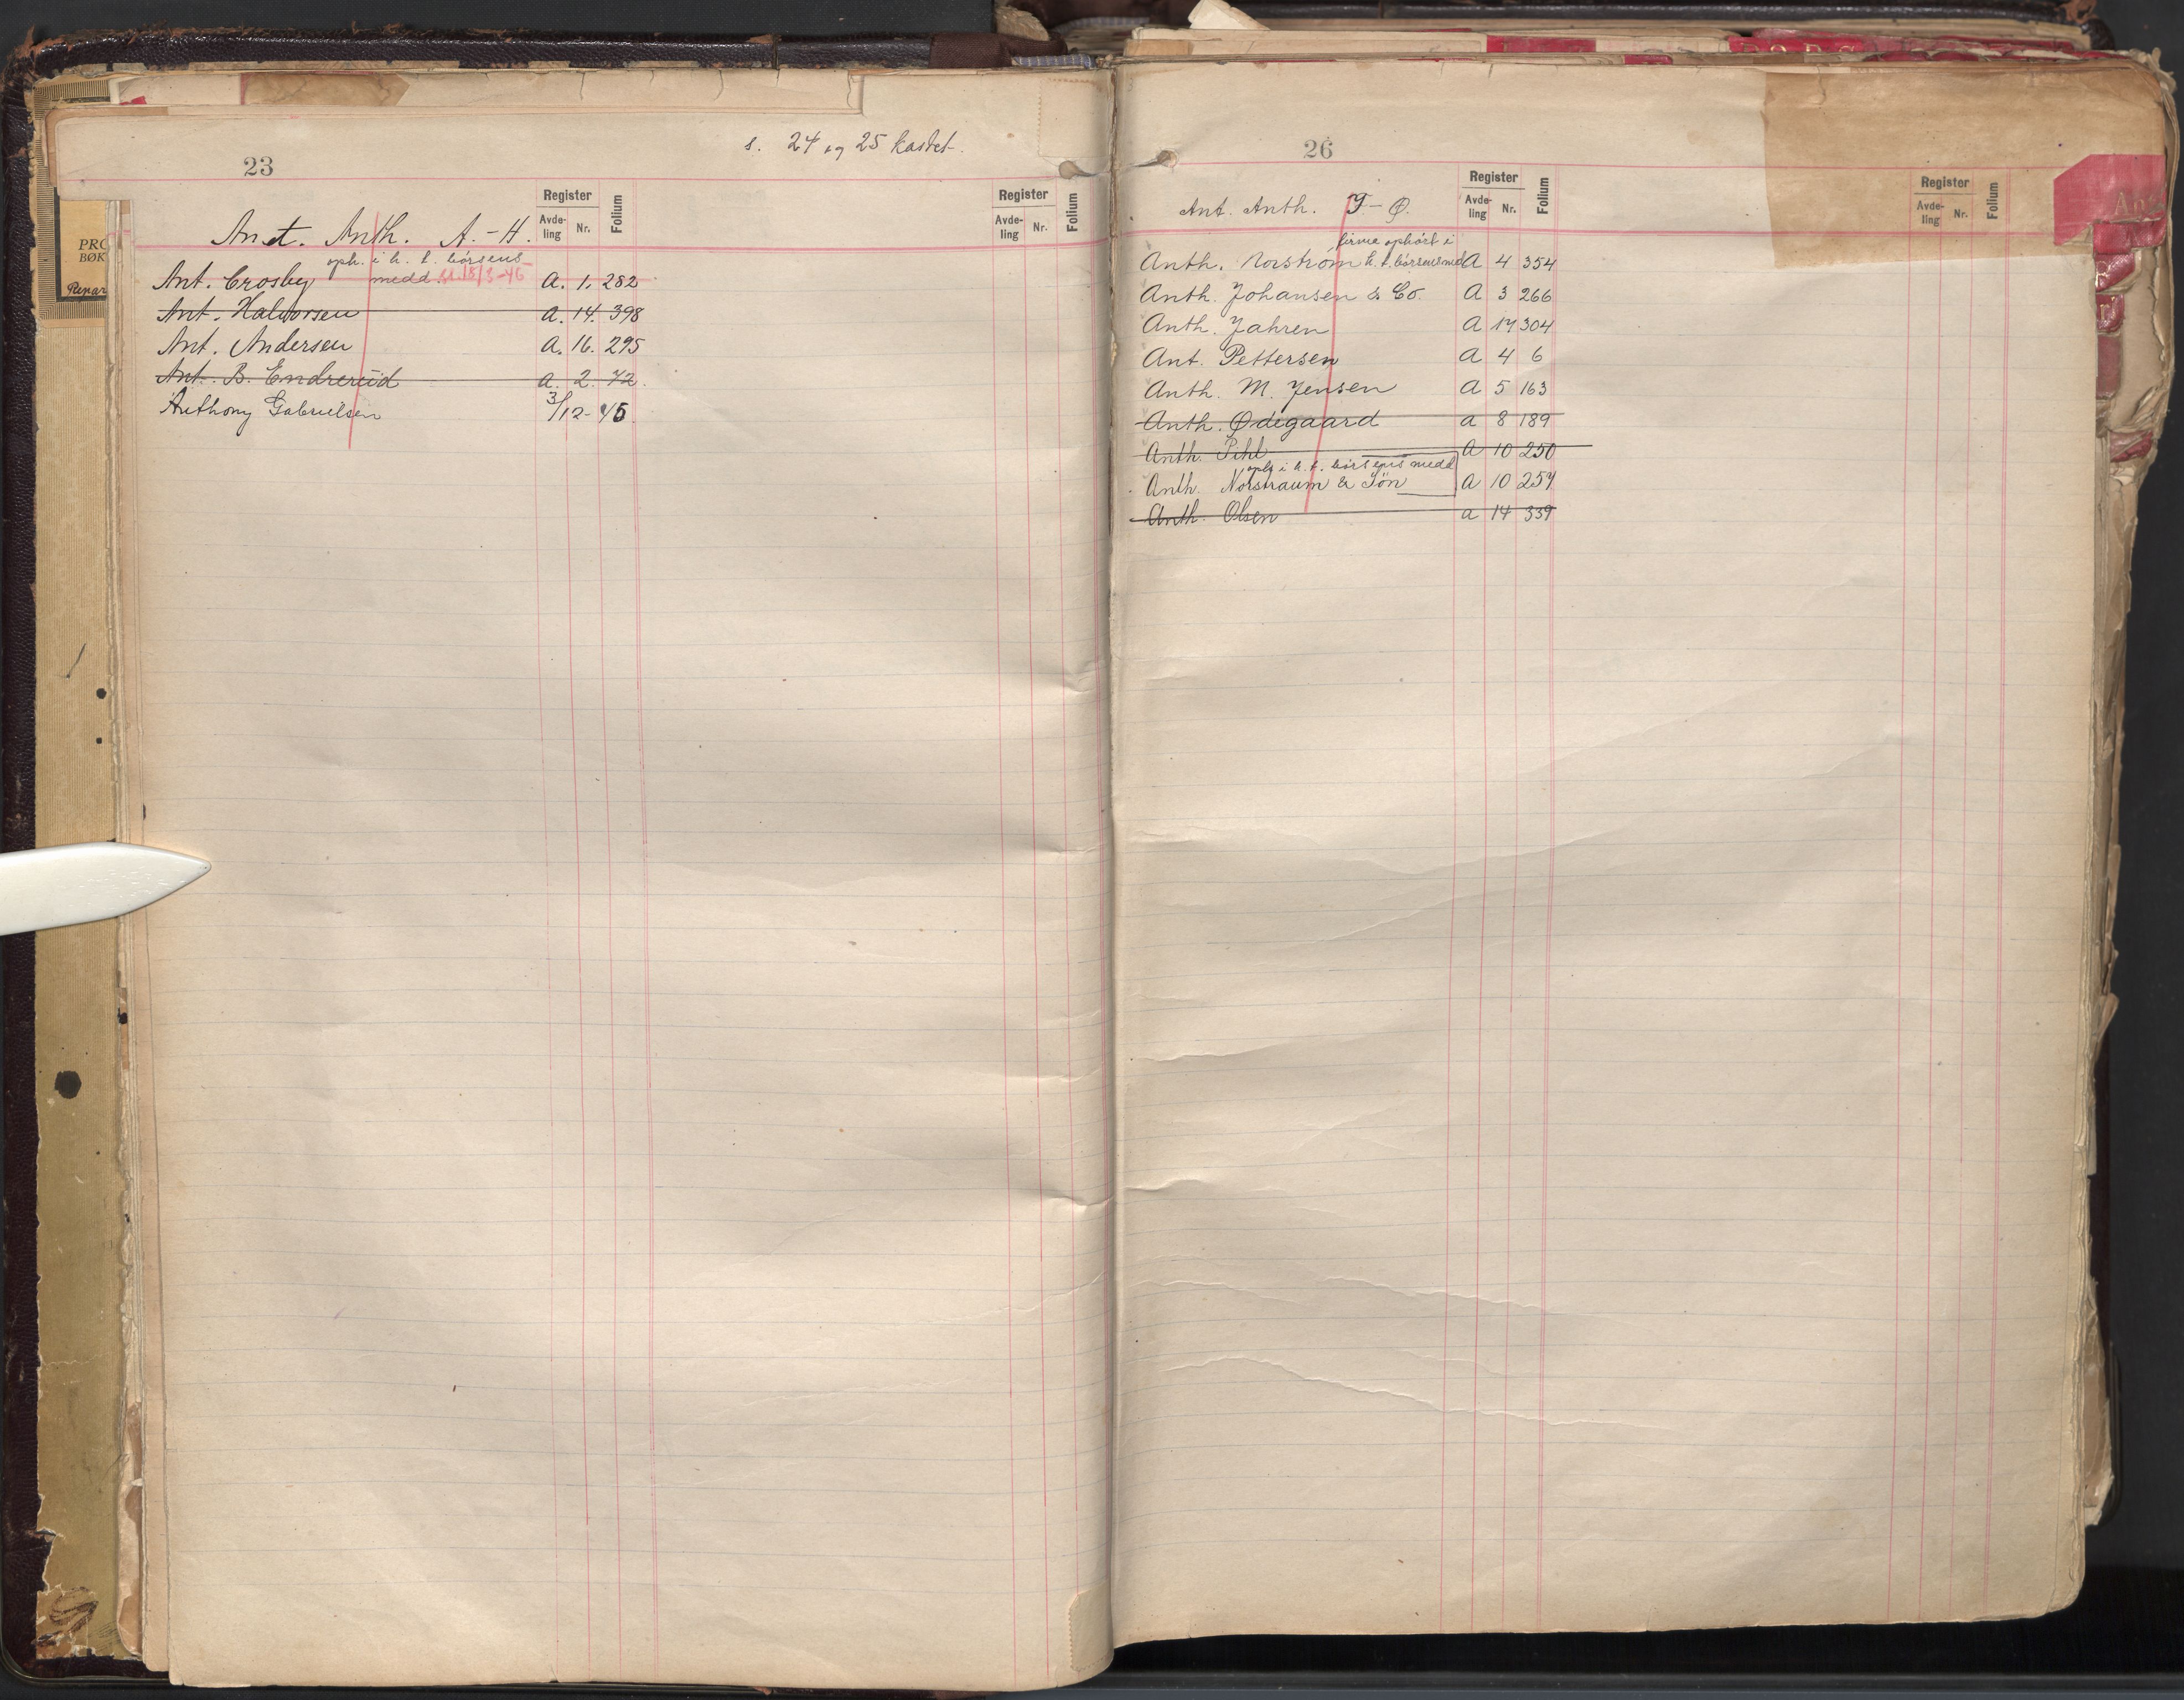 s. 24 og 25 kastet.
23
Register
Avde-
ling
Nr.
Folium
Register
Avde-
ling
Nr.
Folium
Ant. Anth. A. - H.
oph. i h. t. børsens
Ant. Crosby medd. 18/3-46 A. 1. 282
Ant. Halvorsen A. 14. 398
Ant. Andersen A. 16. 295
Ant. B. Endrerud A. 2. 72.
Anthony Gabrielsen 3/12-45.
PRO
BØK
Repar
26
Register
Avde-
ling
Nr.
Folium
Register
Avde-
ling
Nr.
Folium
Ant. Anth. I - Ø.
firma ophørt i
Anth. Norstrøm h. t. børsens med A 4 354
Anth. Johansen & Co. A 3 266
Anth. Jahren A 17 304
Ant. Pettersen A 4 6
Anth. M. Jensen A 5 163
Anth. Ødegaard A 8 189
Anth. Pihl A 10 250
oph. i h. t. børsens medd
Anth. Norstraum & Søn A 10 257
Anth. Olsen A 14 339